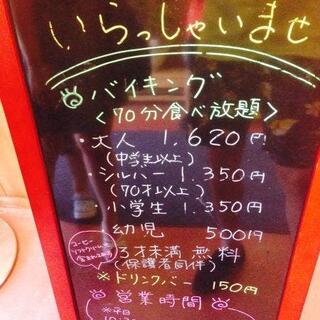 いらっしゃいませ
バイキング
<70分食べ放題>
・大人 1,620円
(中学生以上)
・シルバー 1.350円
(70才以上)
・小学生 1.350円
幼児 500円
3才未満 無料
(保護者同伴)
コーヒー
ソフトクリーム
※ドリンクバー 150円
営業時間
※平日